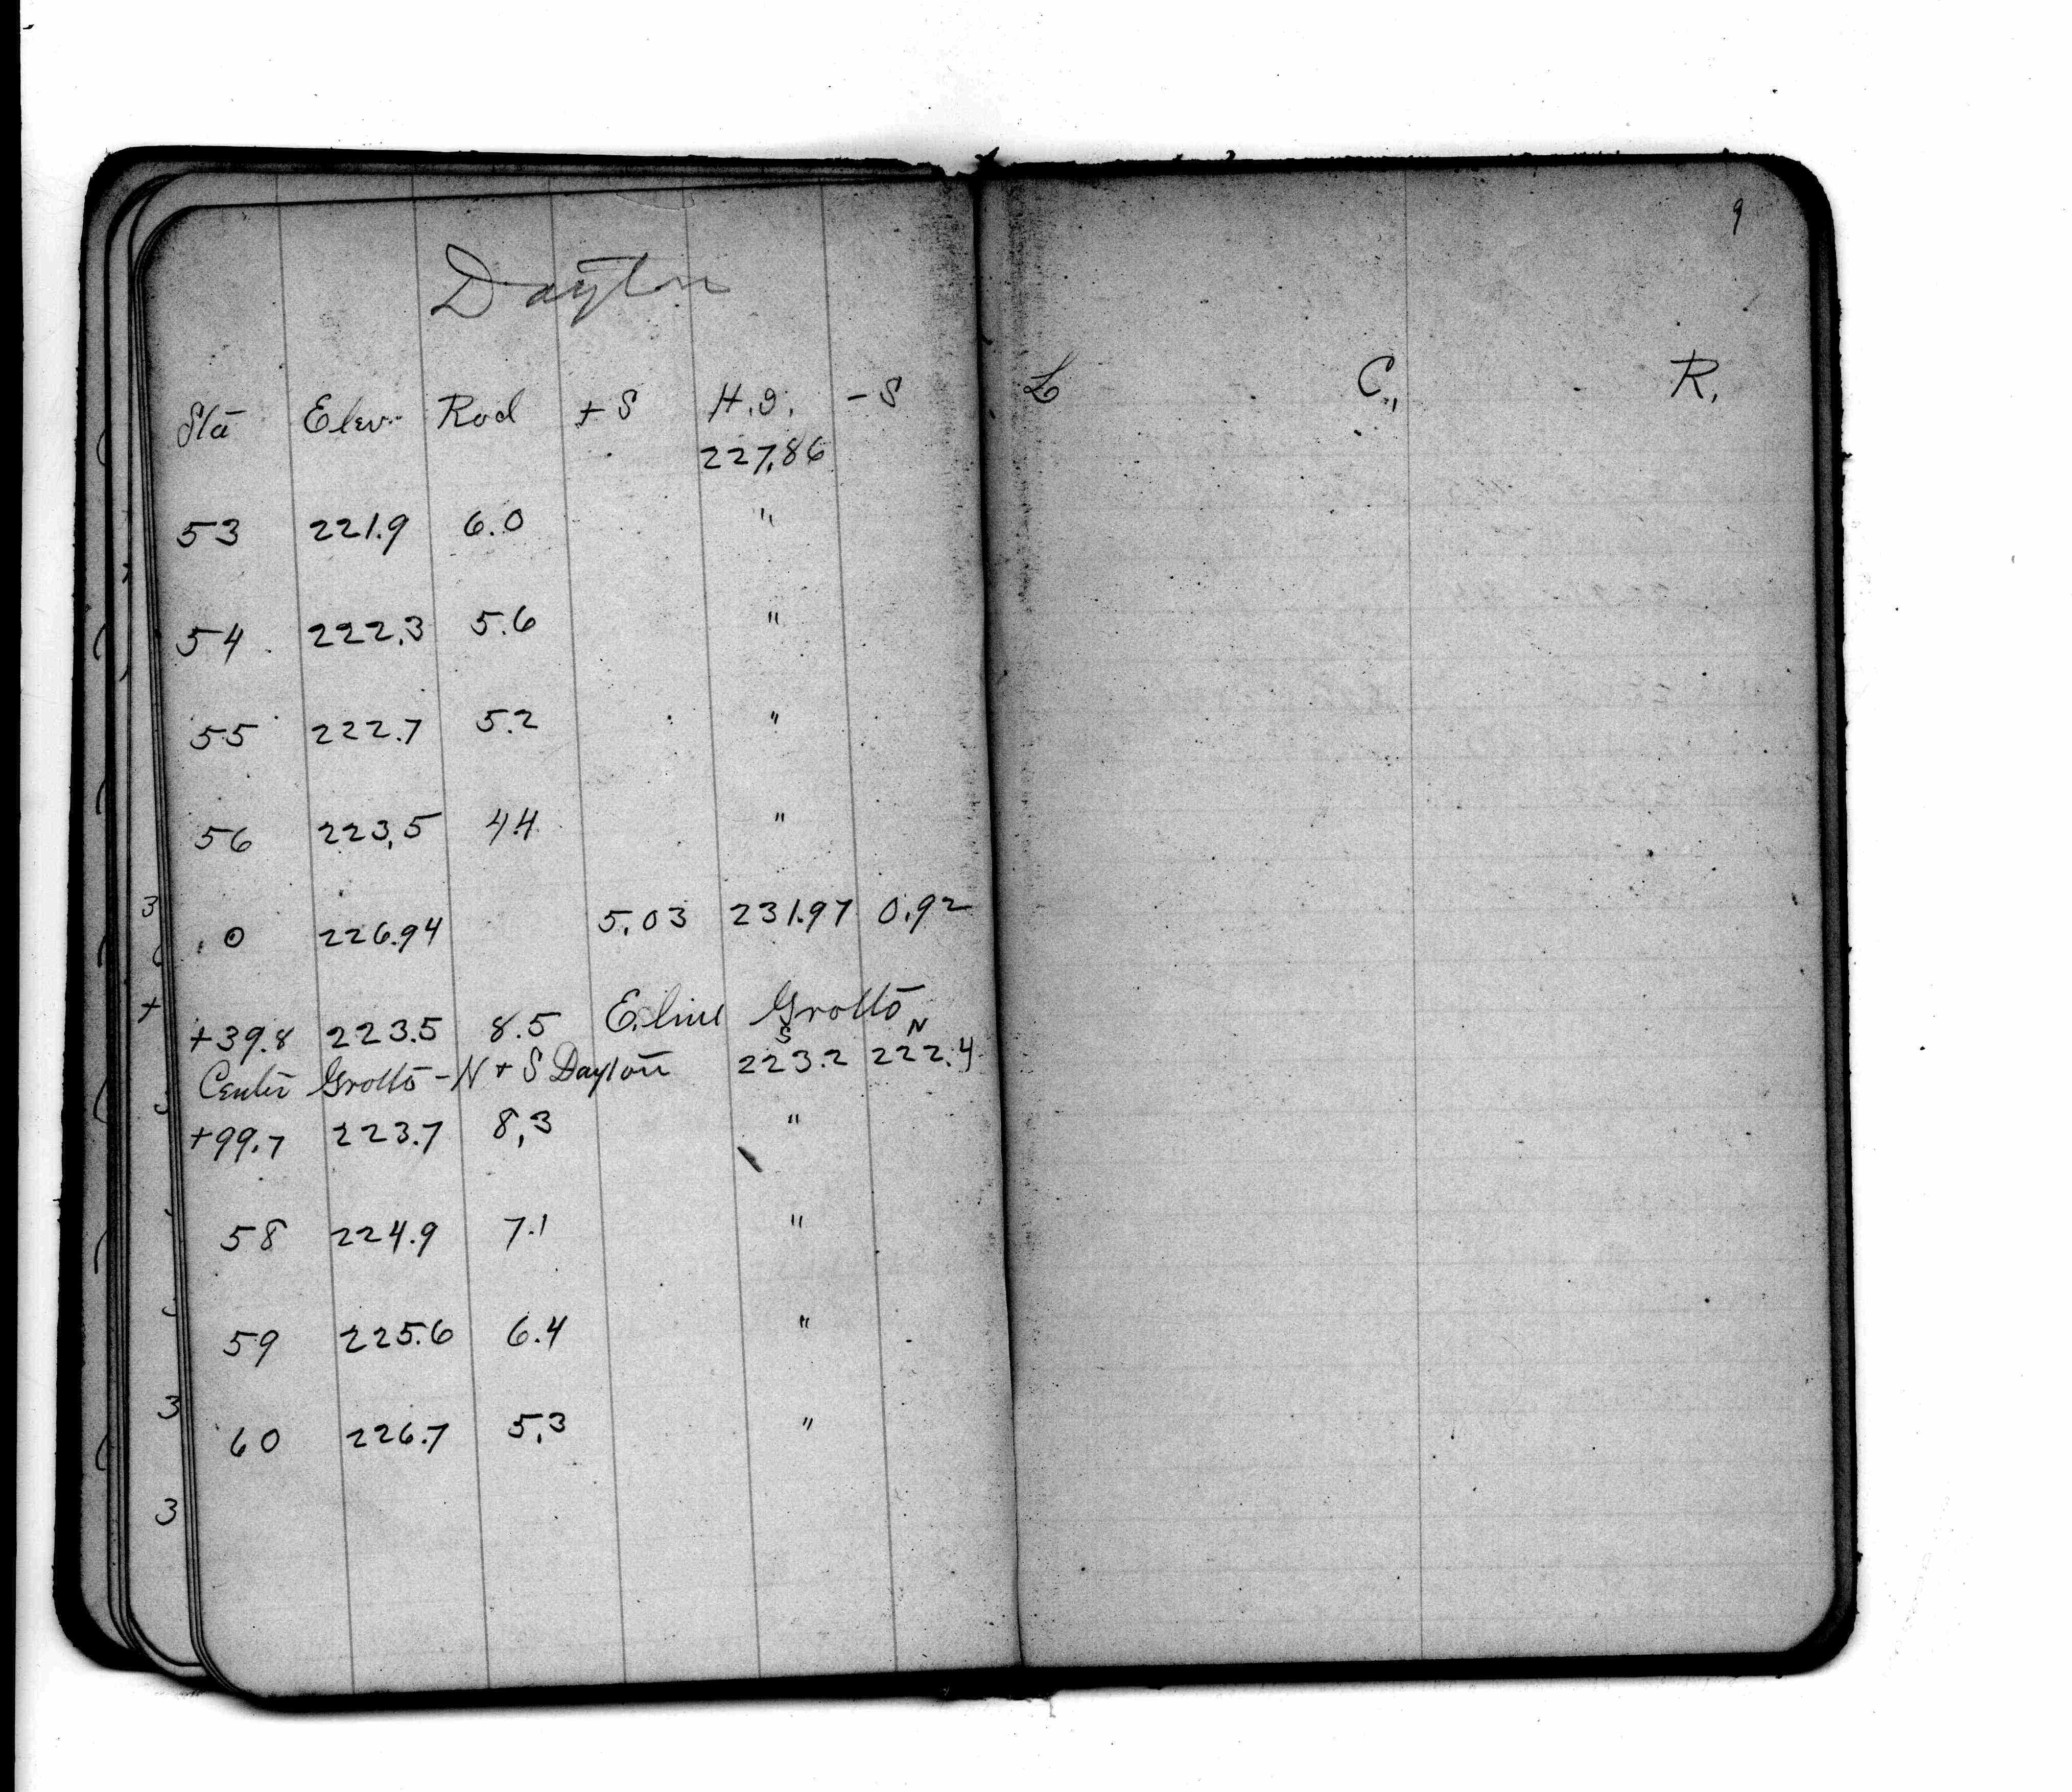 Dayton
Sta Elev. Rod + S H.I. - S
227.86
53 221.9 6.0 "
54 222.3 5.6 "
55 222.7 5.2 "
56 223.5 4.4 "
0 226.94 5.03 231.97 0.92
+39.8 223.5 8.5 E. line Grotto
S N
Center Grotto - N + S Dayton 223.2 222.4
+99.7 223.7 8.3 "
58 224.9 7.1 "
59 225.6 6.4 "
60 226.7 5.3 "
3
+
3
3
9
L C. R.